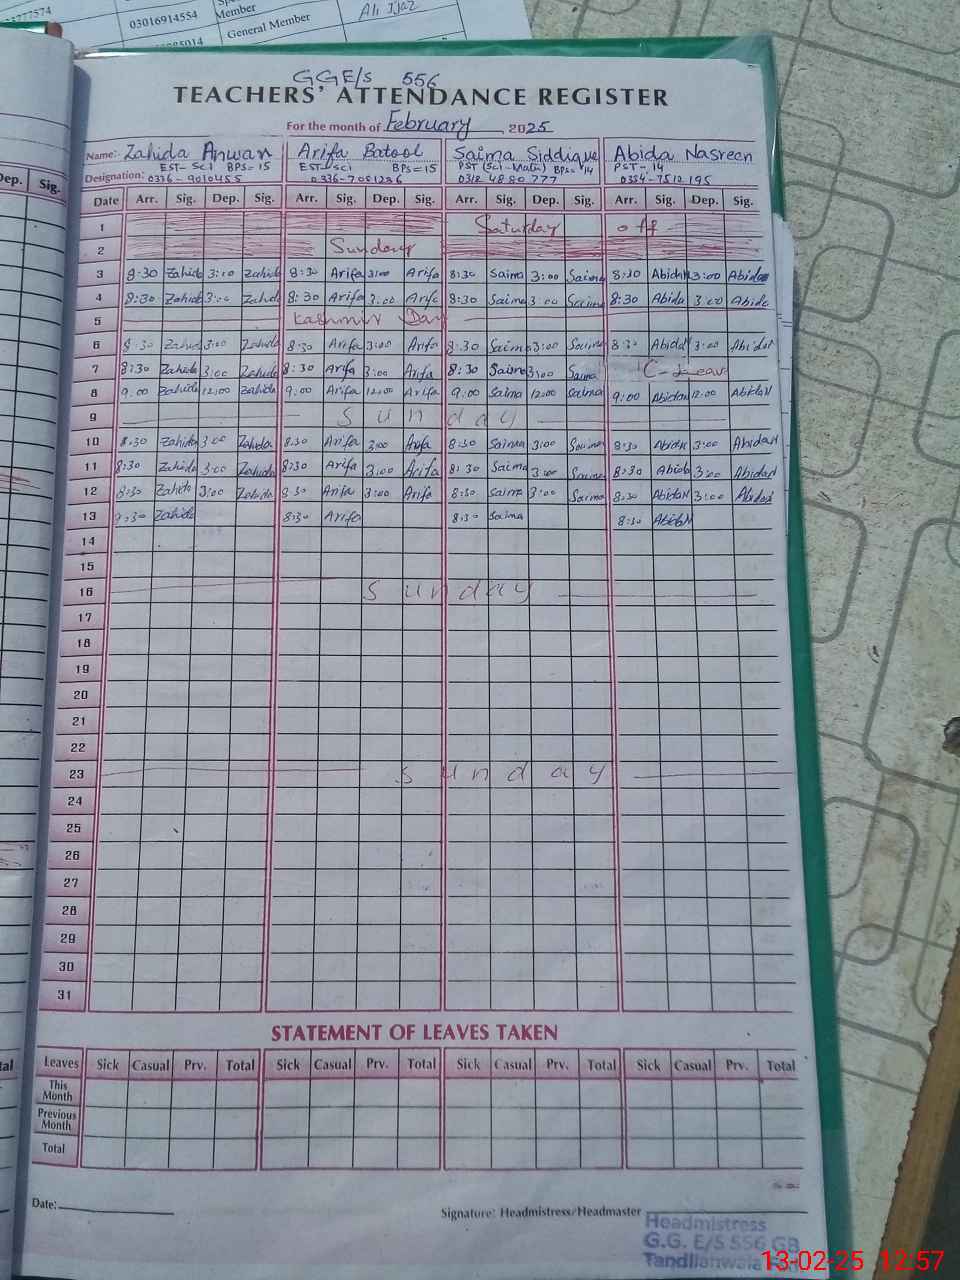 3777574
03016914554
Member
Ali Ijaz
General Member
GGE/S 556
TEACHERS' ATTENDANCE REGISTER
For the month of February 2025
Name: Zahida Anwar Arifa Batool Saima Siddique Abida Nasreen
EST-Sci BPS=15 EST-Sci BPS=15 PST (Sci-Math) BPS=14 PST-14
Designation: 0336-9010455 0312 4880777
Dep. Sig. Date Arr. Sig. Dep. Sig. Arr. Sig. Dep. Sig. Arr. Sig. Dep. Sig. Arr. Sig. Dep. Sig.
1 Saturday off
2 Sunday
3 8:30 Zahida 3:00 Zahida 8:30 Arifa 3:00 Arifa 8:30 Saima 3:00 Saima 8:30 AbidaN 3:00 Abida
4 8:30 Zahida 3:00 Zahida 8:30 Arifa 3:00 Arifa 8:30 Saima 3:00 Saima 8:30 Abida 3:00 Abida
5 Kashmir Day
6 8:30 Zahida 3:00 Zahida 8:30 Arifa 3:00 Arifa 8:30 Saima 3:00 Saima 8:30 AbidaN 3:00 AbidaN
7 8:30 Zahida 3:00 Zahida 8:30 Arifa 3:00 Arifa 8:30 Saima 3:00 Saima C-Leave
8 9:00 Zahida 12:00 Zahida 9:00 Arifa 12:00 Arifa 9:00 Saima 12:00 Saima 9:00 AbidaN 12:00 AbidaN
9 Sunday
10 8:30 Zahida 3:00 Zahida 8:30 Arifa 3:00 Arifa 8:30 Saima 3:00 Saima 8:30 AbidaN 3:00 AbidaN
11 8:30 Zahida 3:00 Zahida 8:30 Arifa 3:00 Arifa 8:30 Saima 3:00 Saima 8:30 Abida 3:00 AbidaN
12 8:30 Zahida 3:00 Zahida 8:30 Arifa 3:00 Arifa 8:30 Saima 3:00 Saima 8:30 AbidaN 3:00 AbidaN
13 8:30 Zahida 8:30 Arifa 8:30 Saima 8:30 AbidaN
14
15
16 Sunday
17
18
19
20
21
22
23 Sunday
24
25
26
27
28
29
30
31
STATEMENT OF LEAVES TAKEN
Leaves Sick Casual Prv. Total Sick Casual Prv. Total Sick Casual Prv. Total Sick Casual Prv. Total
This Month
Previous Month
Total
Date:
Signature: Headmistress/Headmaster
Headmistress
G.G. E/S 556 GB
Tandlianwala
13-02-25 12:57